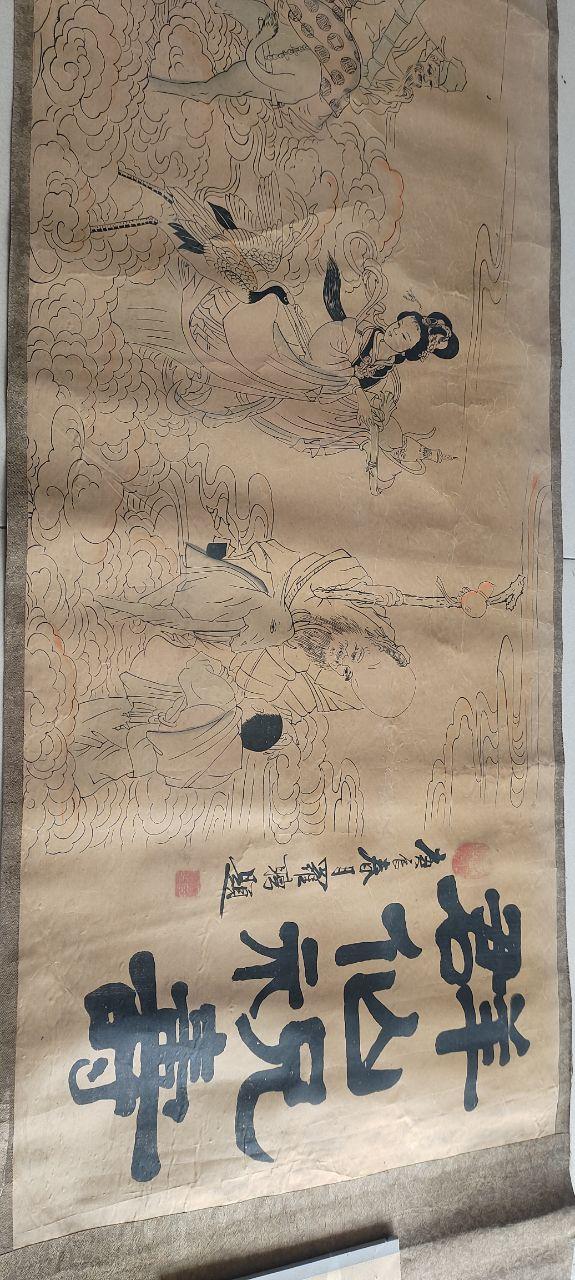 群仙祝壽
春月羅聘題